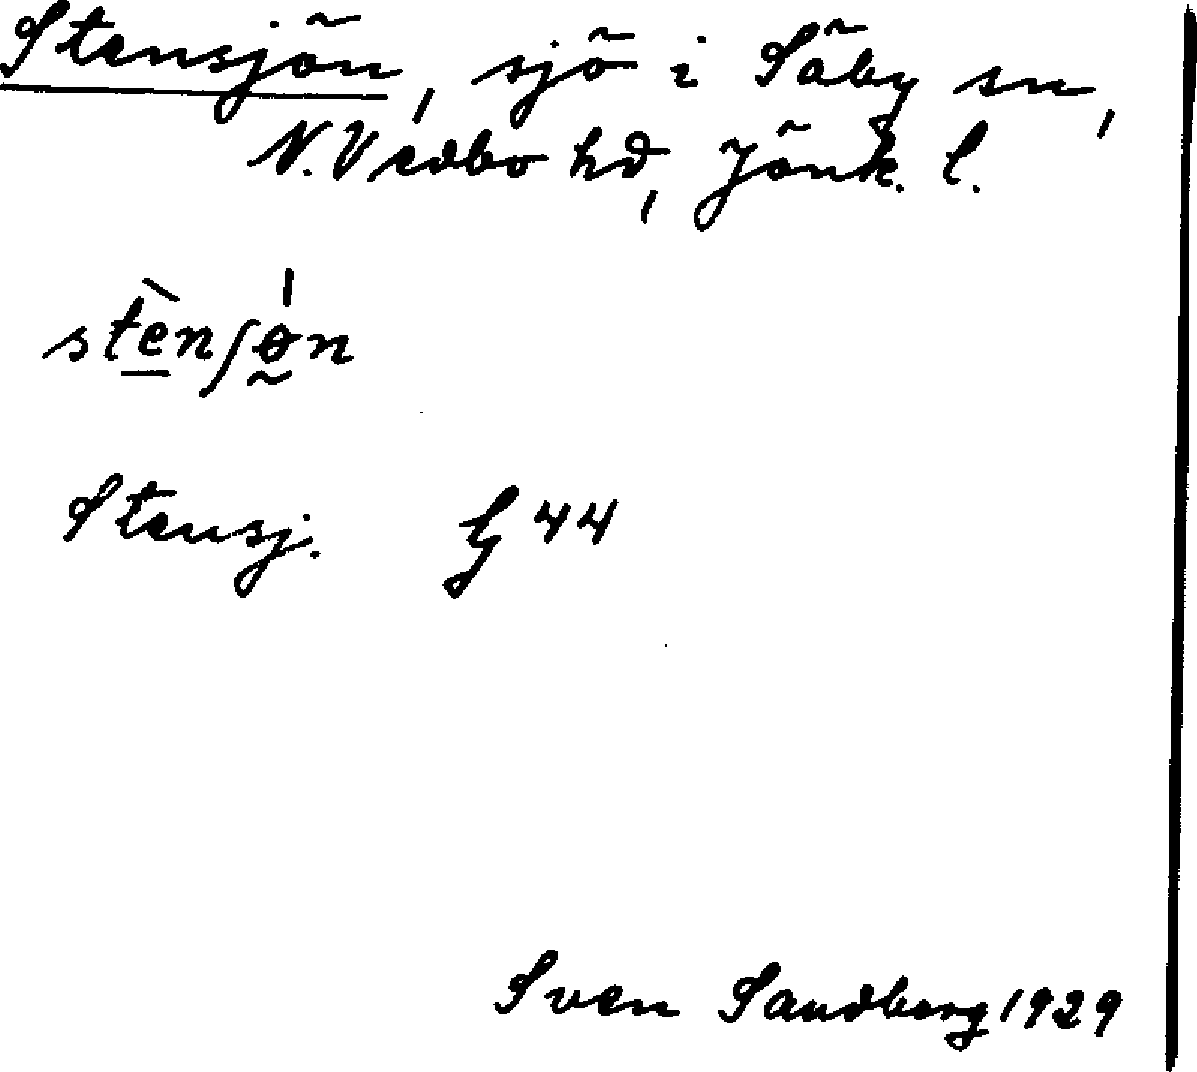 Stensjön, sjö i Säby sn,
N. Vedbo hd, Jönk. l.
stè̱nʃǿ̰n
Stensj. G 44
Sven Sandberg 1929